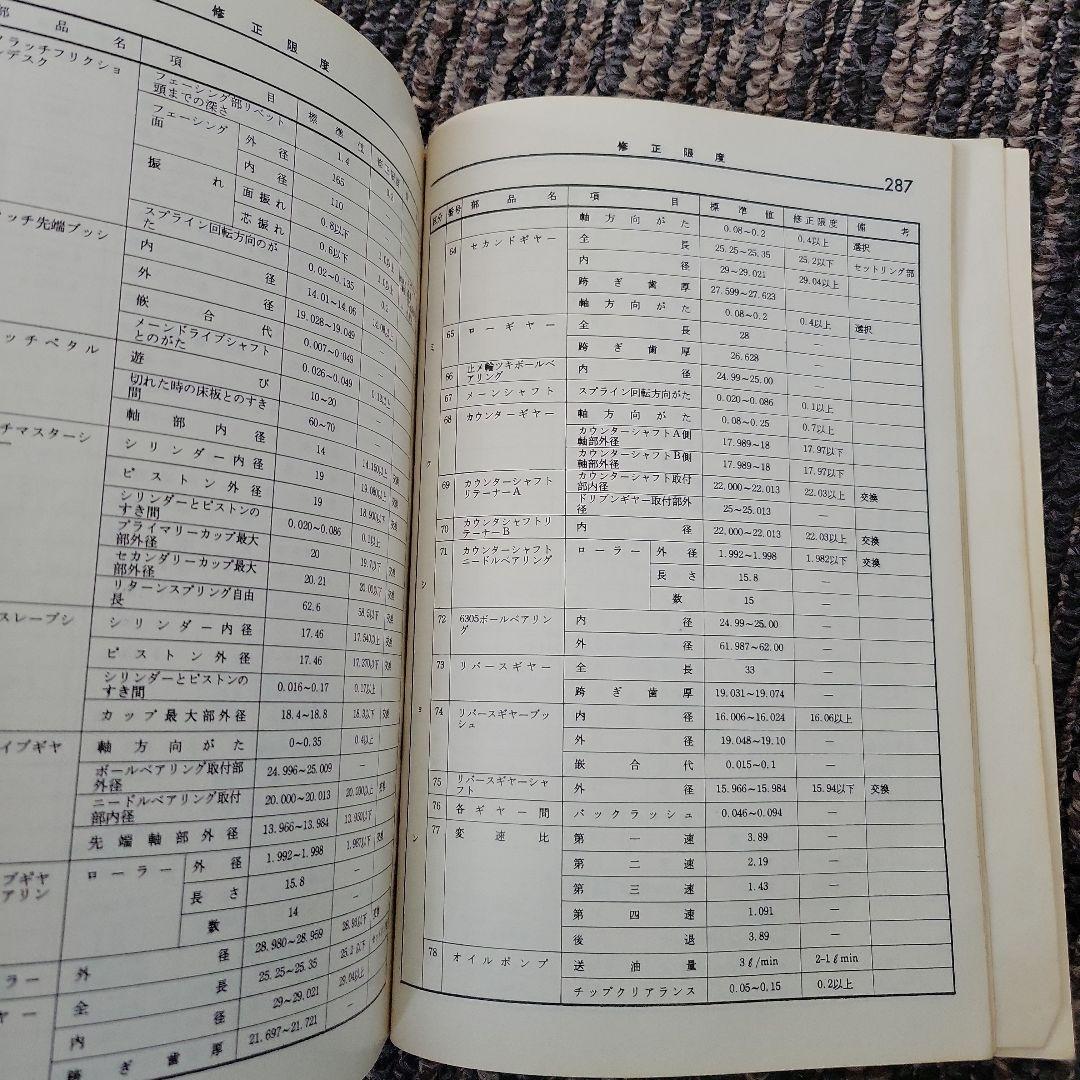 修正限度
部品名 項目 標準値
ラッチフリクショ
ンデスク
フェーシング部リベット
頭までの深さ 1.4
フェーシング
面 外径 165
内径 110
振れ 面振れ 0.8以下
芯振れ 0.6以下
スプライン回転方向のが
た 0.02~0.135
ッチ先端ブッシ 内径 14.01~14.06
外径 19.028~19.049
嵌合代 0.007~0.049
メーンドライブシャフト
とのがた 0.026~0.049
ッチペタル 遊び 10~20
切れた時の床板とのすき
間 60~70
軸部内径 14
チマスターシ
ー シリンダー内径 19
ピストン外径 19
シリンダーとピストンの
すき間 0.020~0.086
プライマリーカップ最大
部外径 20
セカンダリーカップ最大
部外径 20.21
リターンスプリング自由
長 62.6
スレーブシ シリンダー内径 17.46
ピストン外径 17.46
シリンダーとピストンの
すき間 0.016~0.17 0.17以上
カップ最大部外径 18.4~18.8
イブギヤ 軸方向がた 0~0.35 0.4以上
ボールベアリング取付部
外径 24.996~25.009 —
ニードルベアリング取付
部内径 20.000~20.013
先端軸部外径 13.966~13.984
ブギヤ
アリン ローラー 外径 1.992~1.998
長さ 15.8 —
数 14 —
径 28.980~28.959
ラー 外 長 25.25~25.35
ヤー 全 径 29~29.021
内 厚 21.697~21.721 —
跨ぎ歯
修正限度
287
区分 番号 部品名 項目 標準値 修正限度 備考
ミッション
64 セカンドギヤー 軸方向がた 0.08~0.2 0.4以上 選択
全長 25.25~25.35 25.2以下 セットリング部
内径 29~29.021 29.04以上
跨ぎ歯厚 27.599~27.623 —
65 ローギヤー 軸方向がた 0.08~0.2 0.4以上 選択
全長 28 —
跨ぎ歯厚 26.628 —
66 止メ輪ツキボールベ
アリング 内径 24.99~25.00 —
67 メーンシャフト スプライン回転方向がた 0.020~0.086 0.1以上
68 カウンターギヤー 軸方向がた 0.08~0.25 0.7以上
カウンターシャフトA側
軸部外径 17.989~18 17.97以下
カウンターシャフトB側
軸部外径 17.989~18 17.97以下
69 カウンターシャフト
リテーナーA カウンターシャフト取付
部内径 22.000~22.013 22.03以上 交換
ドリブンギヤー取付部外
径 25~25.013 —
70 カウンタシャフトリ
テーナーB 内径 22.000~22.013 22.03以上 交換
71 カウンターシャフト
ニードルベアリング ローラー 外径 1.992~1.998 1.982以下 交換
長さ 15.8 —
数 15 —
72 6305ボールベアリン
グ 内径 24.99~25.00 —
外径 61.987~62.00 —
73 リバースギヤー 全長 33 —
跨ぎ歯厚 19.031~19.074 —
74 リバースギヤーブッ
シュ 内径 16.006~16.024 16.06以上
外径 19.048~19.10 —
嵌合代 0.015~0.1 —
75 リバースギヤーシャ
フト 外径 15.966~15.984 15.94以下 交換
76 各ギヤー間 バックラッシュ 0.046~0.094 —
77 変速比 第一速 3.89 —
第二速 2.19 —
第三速 1.43 —
第四速 1.091 —
後退 3.89 —
78 オイルポンプ 送油量 3ℓ/min 2-1ℓmin
チップクリアランス 0.05~0.15 0.2以上